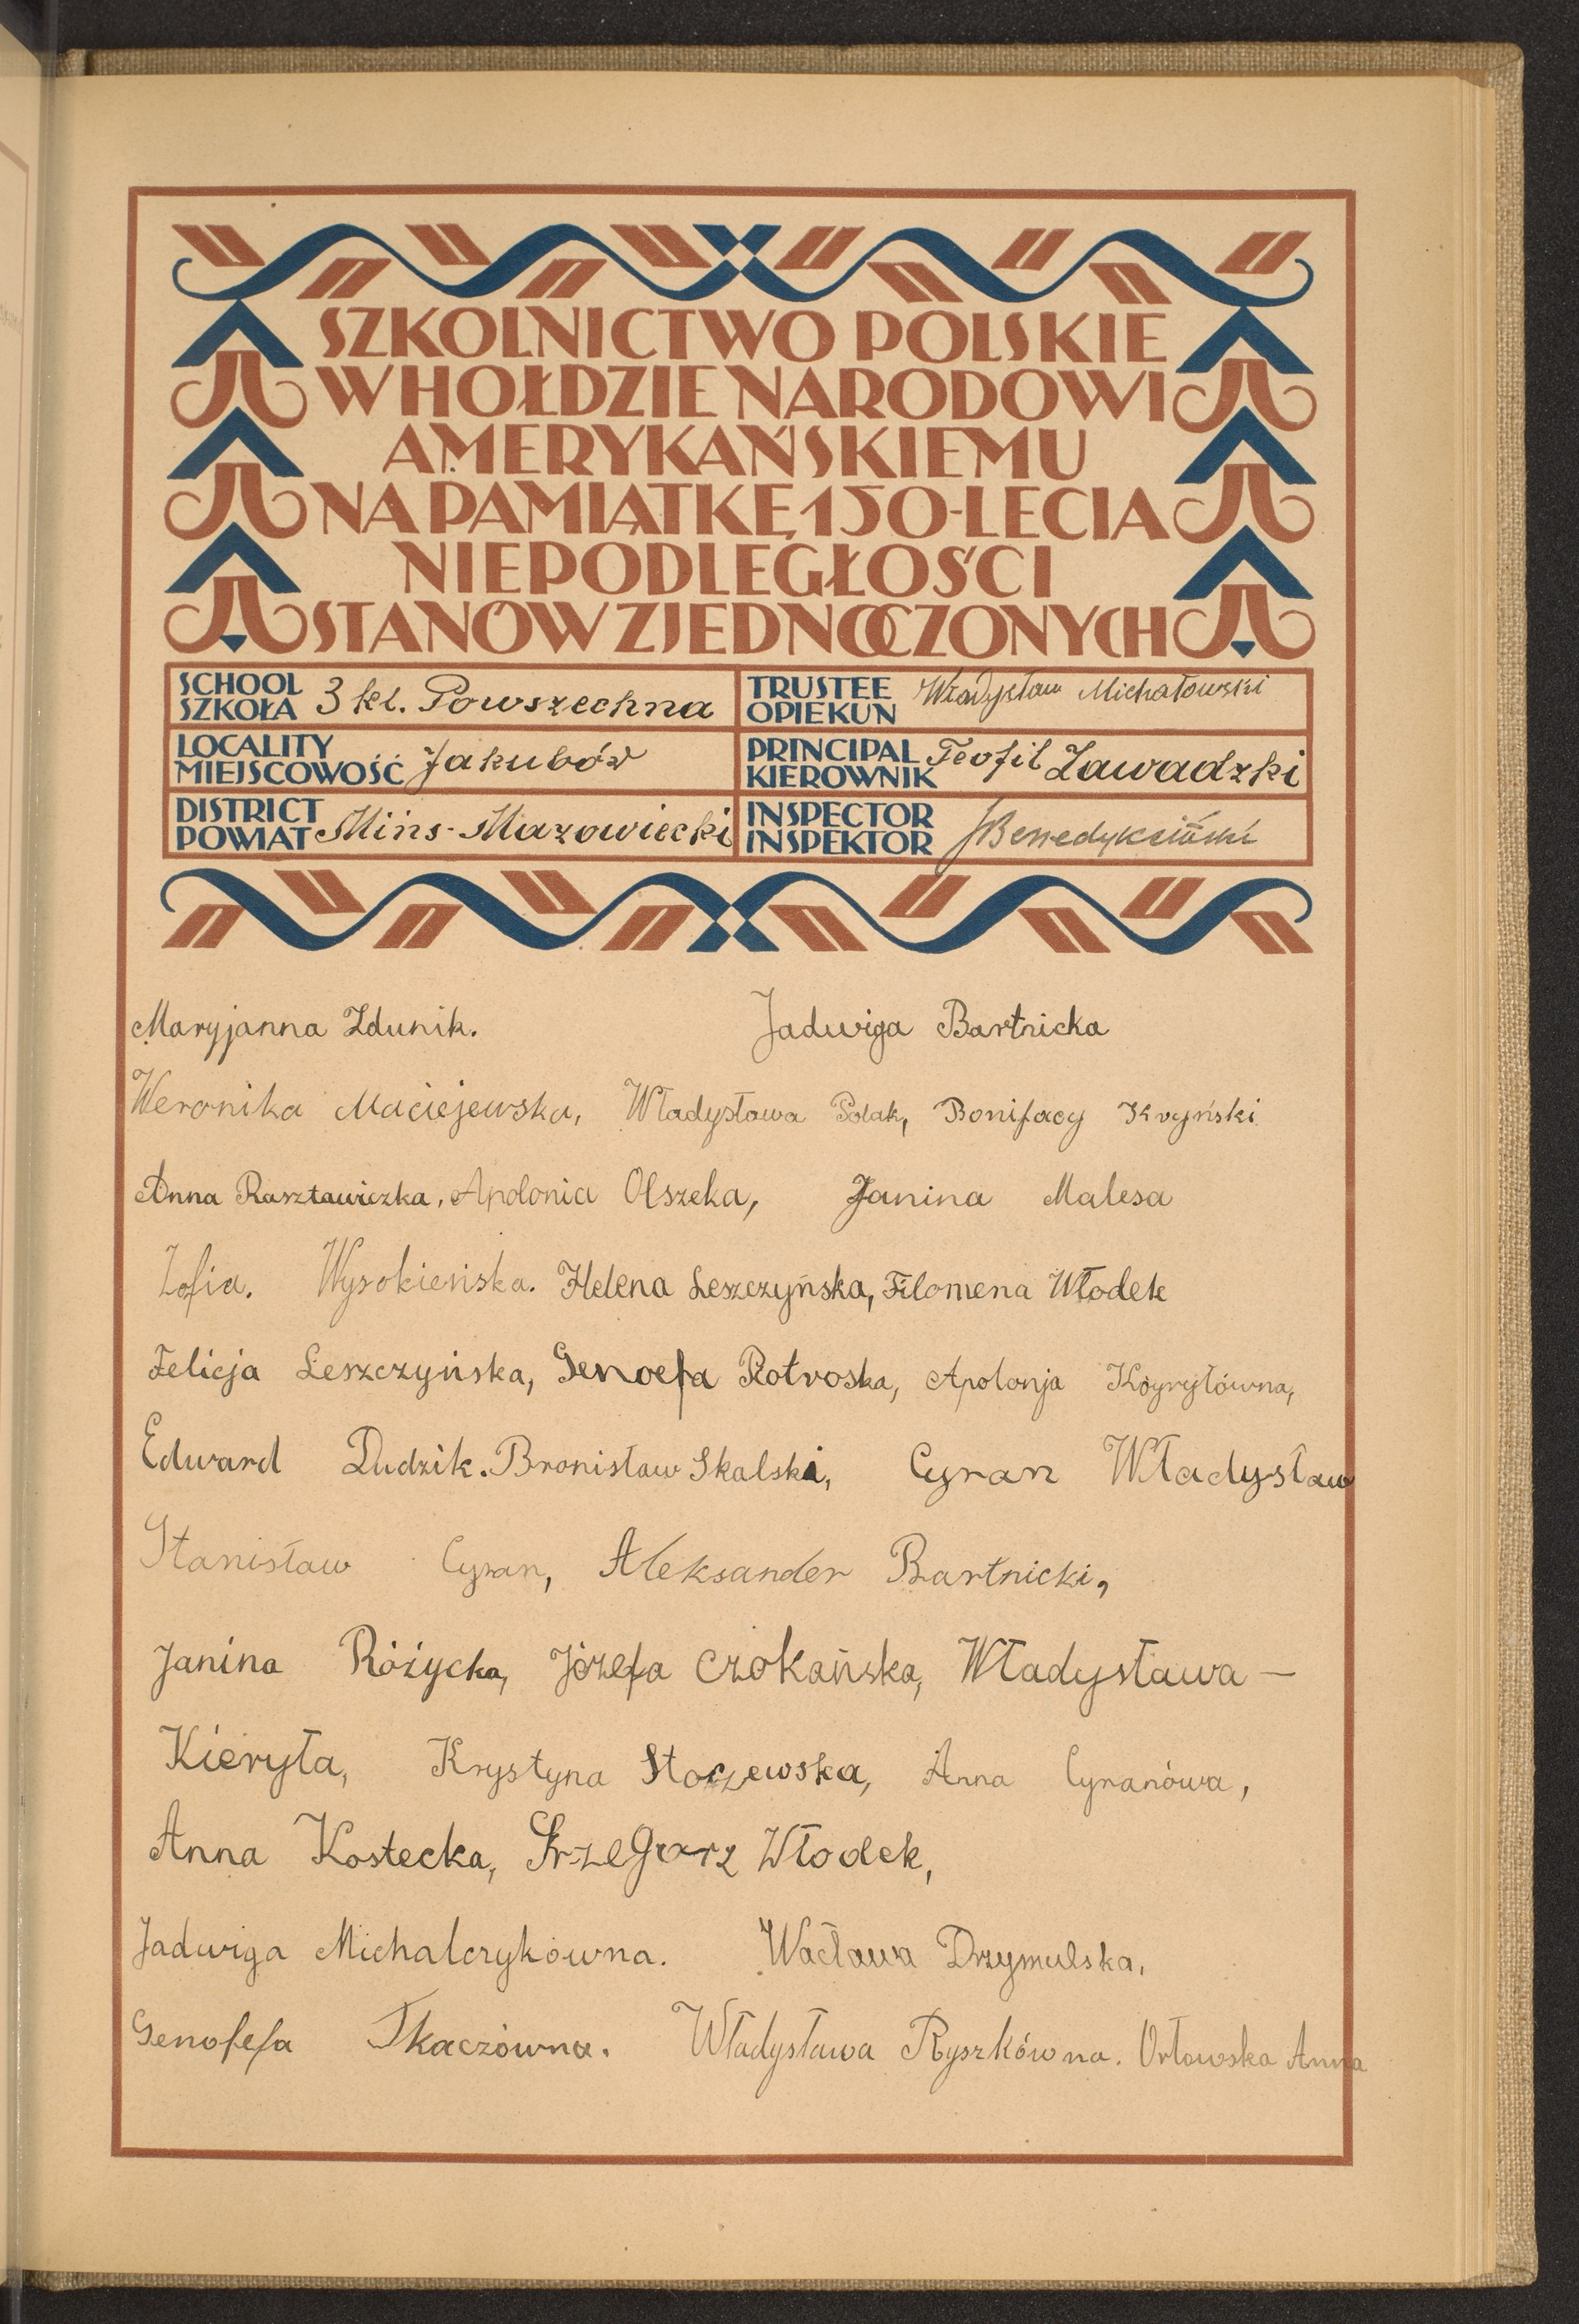 SZKOLNICTWO POLSKIE
W HOŁDZIE NARODOWI
AMERYKAŃSKIEMU
NA PAMIĄTKĘ 150-LECIA
NIEPODLEGŁOŚCI
STANÓW ZJEDNOCZONYCH
SCHOOL
SZKOŁA 3 kl. Powszechna
TRUSTEE
OPIEKUN Władysław Michałowski
LOCALITY
MIEJSCOWOŚĆ Jakubów
PRINCIPAL
KIEROWNIK Teofil Zawadzki
DISTRICT
POWIAT Mińs-Mazowiecki
INSPECTOR
INSPEKTOR
Maryjanna Zdunik. Jadwiga Bartnicka
Weronika Maciejewska, Władysława Polak, Bonifacy
Anna Rasztawiczka, Apolonia Olszeka, Janina Malesa
Zofia. Wysokieńska. Helena Leszczyńska, Filomena Włodek
Felicja Leszczyńska, Genoefa Rotvoska, Apolonja
Edward Dudzik. Bronisław Skalski, Cyran Władysław
Stanisław Cyran, Aleksander Bartnicki,
Janina Różycka, Józefa Czokańska, Władysława –
Kieryła, Krystyna Stoczewska, Anna Cyranówa,
Anna Kostecka, Grzegorz Włodek,
Jadwiga Michalczykówna. Wacława Drzymulska,
Genofefa Tkaczówna. Władysława Ryszkówna. Orłowska Anna